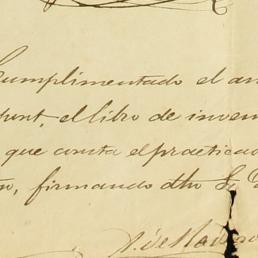 Cumplimentado el an
punt, el libro de inven
que consta el practicad
firmando dho Sr. D